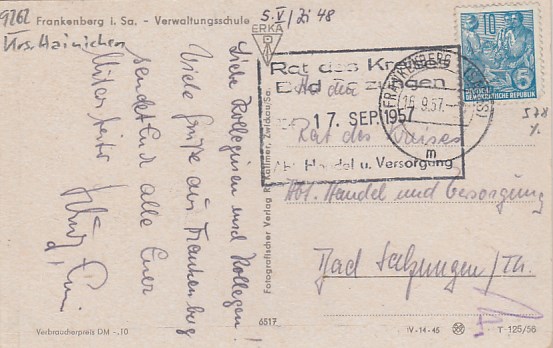 9262
Frankenberg i. Sa. - Verwaltungsschule
Krs. Hainichen
S.V/Zi 48
ERKA
Liebe Kolleginen und Kollegen!
Viele Grüße aus Frankenberg
sendet Euch alle Euer
Mitarbeiter
Verbraucherpreis DM -.10
Fotografischer Verlag R. Kallmer, Zwickau/Sa.
6517
10
5
DEUTSCHE DEMOKRATISCHE REPUBLIK
FRANKENBERG (SACHS)
16.9.57
m
Rat des Kreises
Bad Salzungen
17. SEP. 1957
Abt. Handel u. Versorgung
An den
Rat des Kreises
Abt. Handel und Versorgung
Bad Salzungen/Th.
IV-14-45
T 125/56